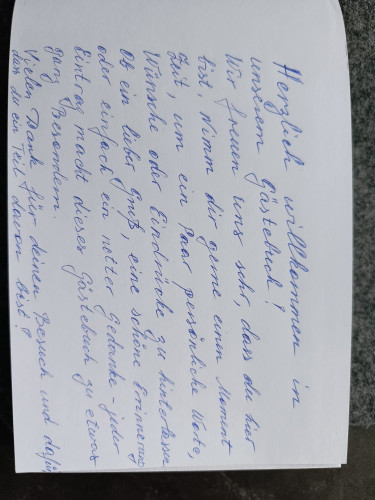 Herzlich willkommen in
unserem Gästebuch!
Wir freuen uns sehr, dass du hier
bist. Nimm dir gerne einen Moment
Zeit, um ein paar persönliche Worte,
Wünsche oder Eindrücke zu hinterlassen
Ob ein lieber Gruß, eine schöne Erinnerung
oder einfach ein netter Gedanke - jeder
Eintrag macht dieses Gästebuch zu etwas
ganz Besonderem.
Vielen Dank für deinen Besuch und dafür
dass du ein Teil davon bist!